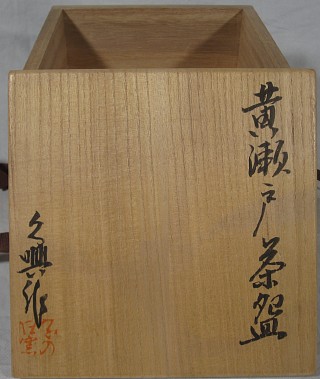 黄瀬戸茶盌
久興作